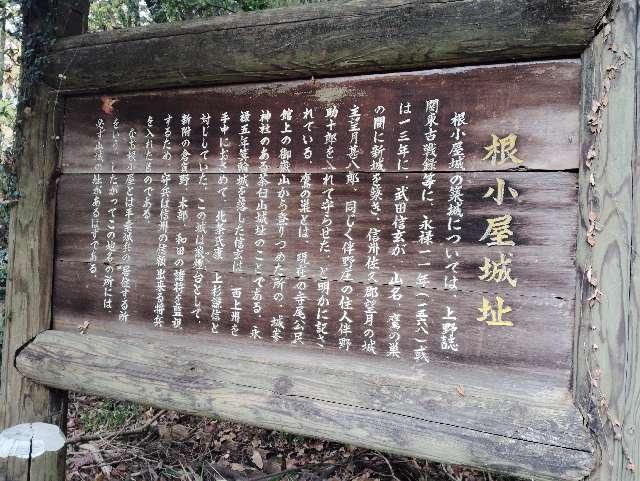 根小屋城址
根小屋城の築城については、上野誌
関東古戦録等に、永禄一一年(一五六八)或
は一三年に 武田信玄が 山名、鷹の巣
の間に新城を築き、信州佐久郡望月の城
主望月甚八郎、同じく伴野庄の住人伴野
助十郎を入れて守らせた、と明かに記さ
れている。鷹の巣とは 現在の寺尾公民
館上の御嶽山から登りつめた所の、城峯
神社のある茶臼山城址のことである。永
禄五年箕輪城を落した信玄は 西上州を
手中におさめて、北条氏康 上杉謙信と
対じしていた、この城は烽煙台として、
新附の倉賀野 木部 和田の諸将を監視
するため、守兵は信州の信頼出来る将兵
を入れたものである。
なお根小屋とは平素城兵の居住する所
をいう、したがってこの地名の所には、
必ず山城の址があるはずである。